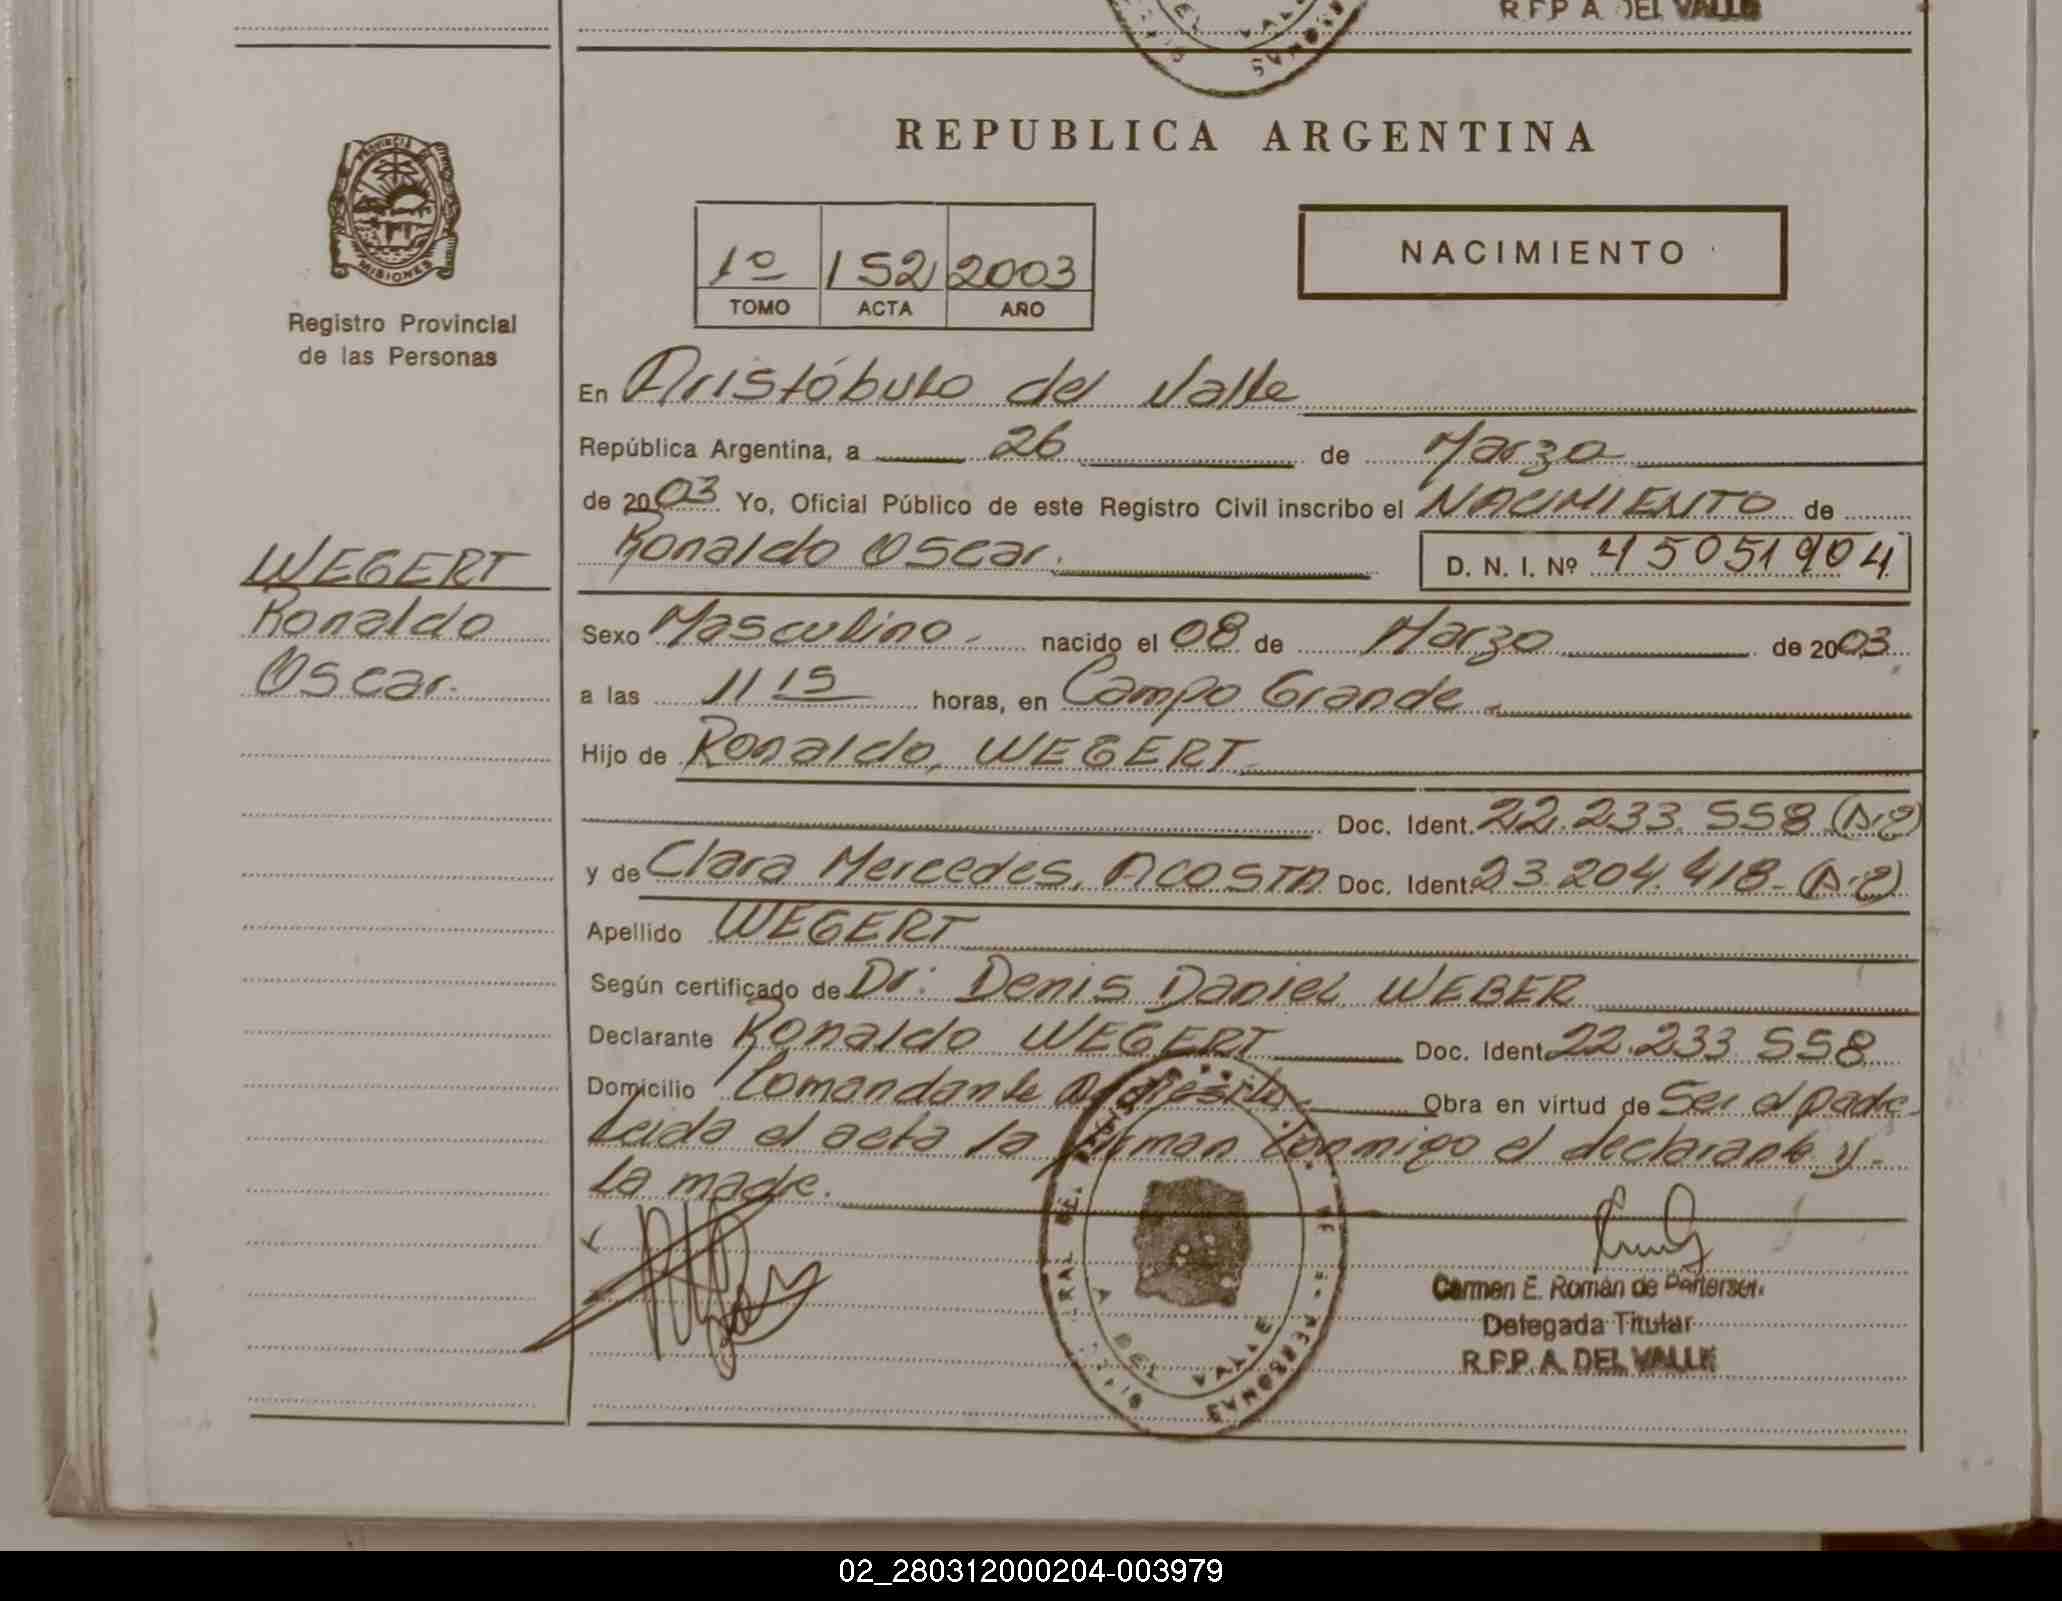 R.F.P A. DEL VALLE
REPUBLICA ARGENTINA
PROVINCIA DE
MISIONES
Registro Provincial
de las Personas
1º 152 2003
TOMO ACTA AÑO
NACIMIENTO
En Aristóbulo del Valle
República Argentina, a 26 de Marzo
de 2003 Yo, Oficial Público de este Registro Civil inscribo el NACIMIENTO de
Ronaldo Oscar. D. N. I. Nº 45051904
WEGERT
Ronaldo
Oscar.
Sexo Masculino.- nacido el 08 de Marzo de 2003
a las 11 15 horas, en Campo Grande.
Hijo de Ronaldo, WEGERT
Doc. Ident. 22.233.558
y de Clara Mercedes, ACOSTA Doc. Ident. 23.204.418.
Apellido WEGERT
Según certificado de Dr: Denis Daniel WEBER
Declarante Ronaldo WEGERT Doc. Ident. 22.233.558
Domicilio Comandante Andresito. Obra en virtud de Ser el padre.
Leida el acta la firman conmigo el declarante y
la madre.
Carmen E. Román de
Delegada Titular
R.F.P. A. DEL VALLE
A DEL VALLE
PERSONAS
02_280312000204-003979